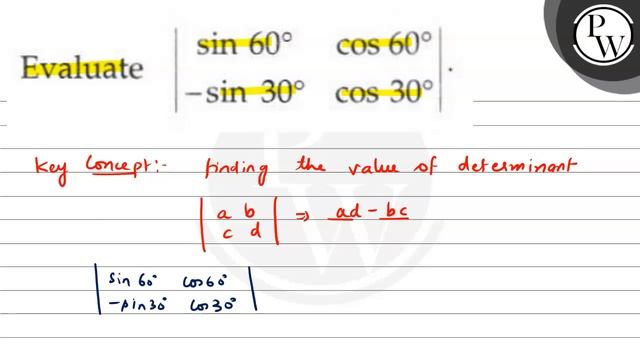 P
W
Evaluate | sin 60° cos 60° |
| −sin 30° cos 30° | .
Key Concept:- finding the value of determinant
| a b | ⇒ ad - bc
| c d |
| sin 60° cos 60° |
| -sin 30° cos 30° |